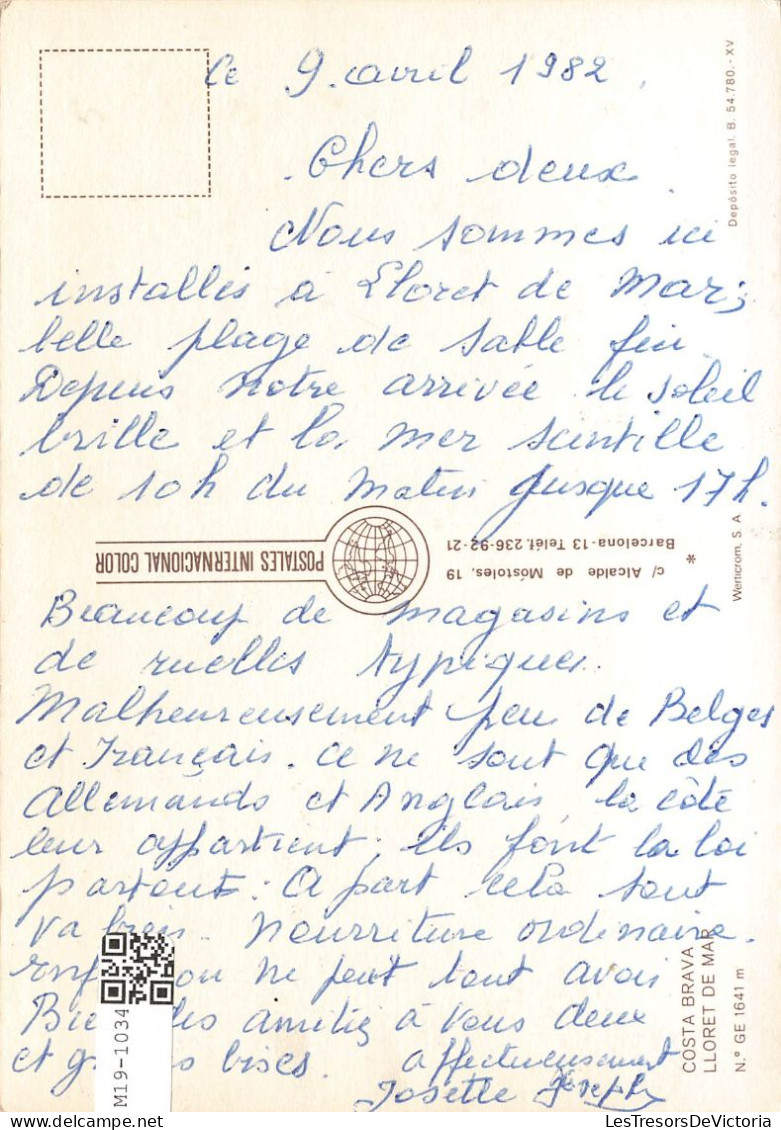 Ce 9. avril 1982.
Chers deux
Nous sommes ici
installés à Lloret de Mar;
belle plage de sable fin
Depuis notre arrivée le soleil
brille et la mer scintille
de 10h du matin jusque 17h.
POSTALES INTERNACIONAL COLOR
c/ Alcalde de Móstoles, 19
Barcelona-13 Teléf. 236-92-21
*
Beaucoup de magasins et
de ruelles typiques.
Malheureusement peu de Belges
et Français. ce ne sont que des
Allemands et Anglais, la côte
leur appartient; ils font la loi
partout: A part cela tout
va bien. Nourriture ordinaire.
on ne peut tout avoir
Bien des amitiés à vous deux
et bises. affectueusement
Josette Joseph
Depósito legal. B. 54.780.-XV
Werticrom, S. A
COSTA BRAVA
LLORET DE MAR
N.º GE 1641 m
M19-1034
LesTresorsDeVictoria | Delcampe.net